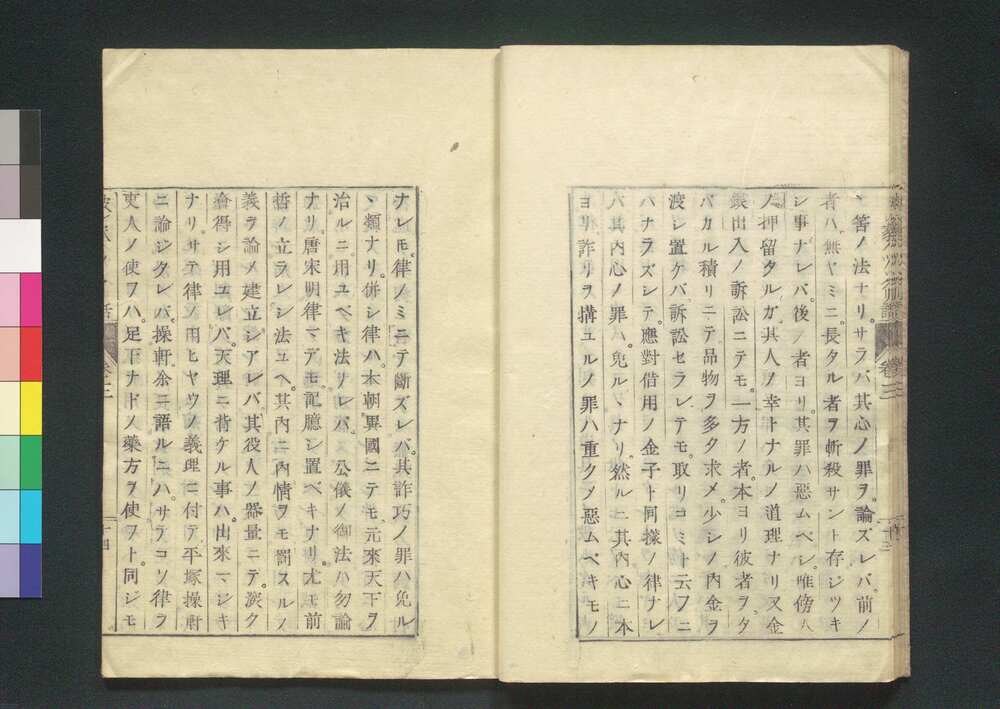 ヽ笞ノ法ナリ。サラバ其心ノ罪ヲ。論ズレバ。前ノ
者ハ。無ヤミニ。長タル者ヲ斬殺サント存ジツキ
シ事ナレバ。後ノ者ヨリ。其罪ハ惡ムベシ。唯傍人
ノ押留タルガ。其人ノ幸トナルノ道理ナリ又金
銀出入ノ訴訟ニテモ。一方ノ者。本ヨリ彼者ヲ。タ
バカル積リニテ品物ヲ多ク求メ。少シノ内金ヲ
渡シ置ケバ。訴訟セラレテモ。取リコミト云フニ
ハナラズシテ。應對借用ノ金子ト同樣ノ律ナレ
バ其内心ノ罪ハ。免ルヽナリ。然ルニ其内心ニ本
ヨリ詐リヲ搆ユルノ罪ハ重クメ惡ムベキモノ
卷三
十三
ナレモ。律ノミニテ斷ズレバ。其詐巧ノ罪ハ免ル
ヽ類ナリ。併シ律ハ。本朝異國ニテモ。元來天下ヲ
治ルニ。用ユベキ法リレバ。公儀ノ御法ハ勿論
ナリ。唐宋明律マデモ。記臆シ置ベキナリ。尤モ前
哲ノ立ラレシ法ユヘ。其内ニ内情ヲモ罰スルノ
義ヲ論メ建立シアレバ其役人ノ器量ニテ。深ク
會得シ用ユレバ。天理ニ背ケル事ハ。出來マジキ
ナリ。サテ律ノ用ヒヤウノ義理ニ付テ平塚操軒
ニ論シタレバ。操軒余ニ語ルニハ。サテコソ律ヲ
吏人ノ使フハ。足下ナドノ藥方ヲ使フト同ジモ
卷三
十四